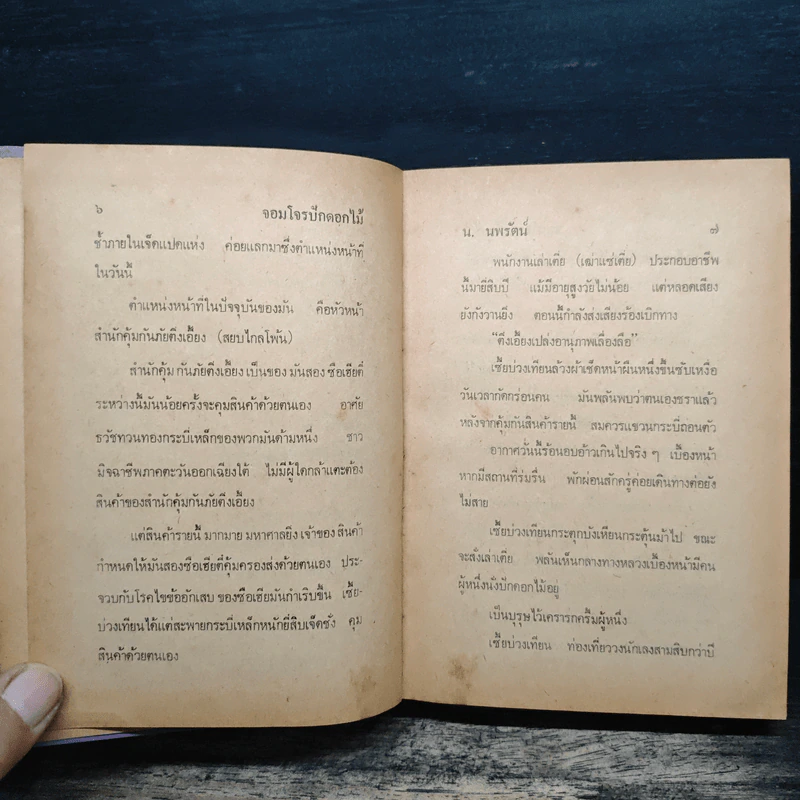 ๖ จอมโจรปักดอกไม้
ซ้ำภายในเจ็ดแปดแห่ง ค่อยแลกมาซึ่งตำแหน่งหน้าที่
ในวันนี้
ตำแหน่งหน้าที่ในปัจจุบันของมัน คือหัวหน้า
สำนักคุ้มกันภัยตึงเอี้ยง (สยบไกลโพ้น)
สำนักคุ้มกันภัยตึงเอี้ยง เป็นของ มันสอง ซือเฮียตี๋
ระหว่างนี้มันน้อยครั้งจะคุมสินค้าด้วยตนเอง อาศัย
ธวัชทวนทองกระบี่เหล็กของพวกมันด้ามหนึ่ง ชาว
มิจฉาชีพภาคตะวันออกเฉียงใต้ ไม่มีผู้ใดกล้าแตะต้อง
สินค้าของสำนักคุ้มกันภัยตึงเอี้ยง
แต่สินค้ารายนี้ มากมาย มหาศาลยิ่ง เจ้าของ สินค้า
กำหนดให้มันสองซือเฮียตี๋คุ้มครองส่งด้วยตนเอง ประ-
จวบกับโรคไขข้ออักเสบ ของซือเฮียมันกำเริบขึ้น เซี้ย-
บ่วงเทียนได้แต่สะพายกระบี่เหล็กหนักยี่สิบเจ็ดชั่ง คุม
สินค้าด้วยตนเอง
น. นพรัตน์ ๗
พนักงานเล่าเตี่ย (เฒ่าแซ่เตี่ย) ประกอบอาชีพ
นี้มายี่สิบปี แม้มีอายุสูงวัยไม่น้อย แต่หลอดเสียง
ยังกังวานยิ่ง ตอนนี้กำลังส่งเสียงร้องเบิกทาง
“ตึงเอี้ยงเปล่งอานุภาพเลื่องลือ”
เซี้ยบ่วงเทียนล้วงผ้าเช็ดหน้าผืนหนึ่งขึ้นซับเหงื่อ
วันเวลากัดกร่อนคน มันพลันพบว่าตนเองชราแล้ว
หลังจากคุ้มกันสินค้ารายนี้ สมควรแขวนกระบี่ถอนตัว
อากาศวันนี้ร้อนอบอ้าวเกินไปจริง ๆ เบื้องหน้า
หากมีสถานที่ร่มรื่น พักผ่อนสักครู่ค่อยเดินทางต่อยัง
ไม่สาย
เซี้ยบ่วงเทียนกระตุกบังเหียนกระตุ้นม้าไป ขณะ
จะสั่งเล่าเตี่ย พลันเห็นกลางทางหลวงเบื้องหน้ามีคน
ผู้หนึ่งนั่งปักดอกไม้อยู่
เป็นบุรุษไว้เครารกครึ้มผู้หนึ่ง
เซี้ยบ่วงเทียน ท่องเที่ยววงนักเลงสามสิบกว่าปี